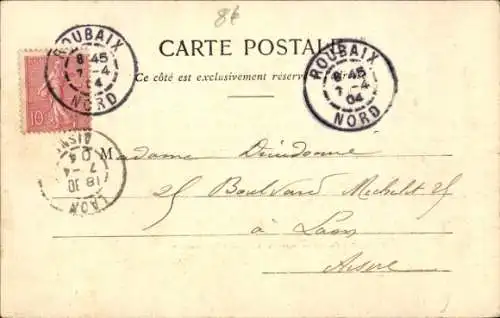 86
CARTE POSTALE
Ce côté est exclusivement réservé
ROUBAIX
8 45
7 -4
04
NORD
ROUBAIX
8 45
7 -4
04
NORD
10
AISNE
LAON
18 30
7 -4
04
Madame Dieudonné
25 Boulevard Michelet 25
à Laon
Aisne